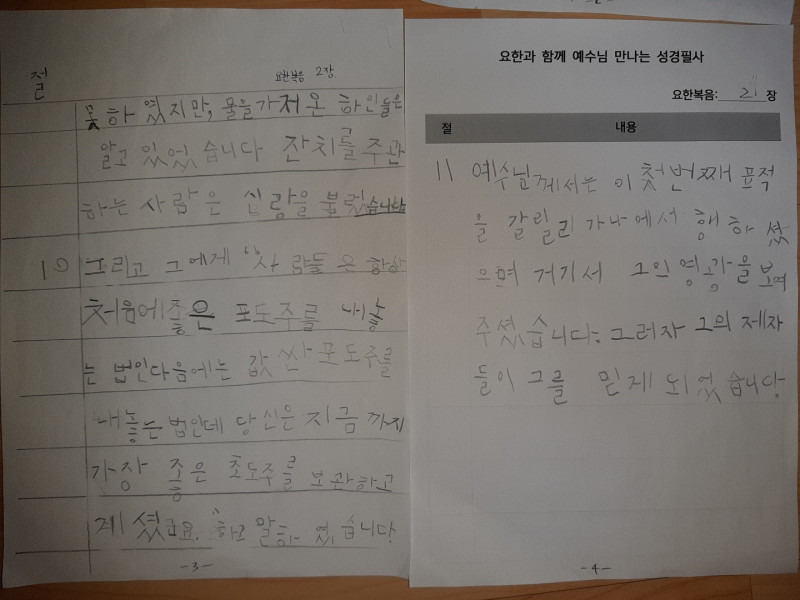 절
요한복음 2장
못하였지만, 물을가져온 하인들은
알고 있었습니다 잔치를 주관
하는 사람은 신랑을 불렀습니다
10 그리고 그에게 "사람들은 항상
처음에좋은 포도주를 내놓
는 법인다음에는 값싼포도주를
내놓는법인데 당신은 지금까지
가장 좋은 초도주를 보관하고
계셨군요. "하고 말하였습니다
-3-
요한과 함께 예수님 만나는 성경필사
요한복음: 2 장
절 내용
11 예수님께서는 이 첫번째 표적
을 갈릴리 가나에서 행하셨
으며 거기서 그의영광을 보여
주셨습니다. 그러자 그의 제자
들이 그를 믿게 되었습니다
-4-